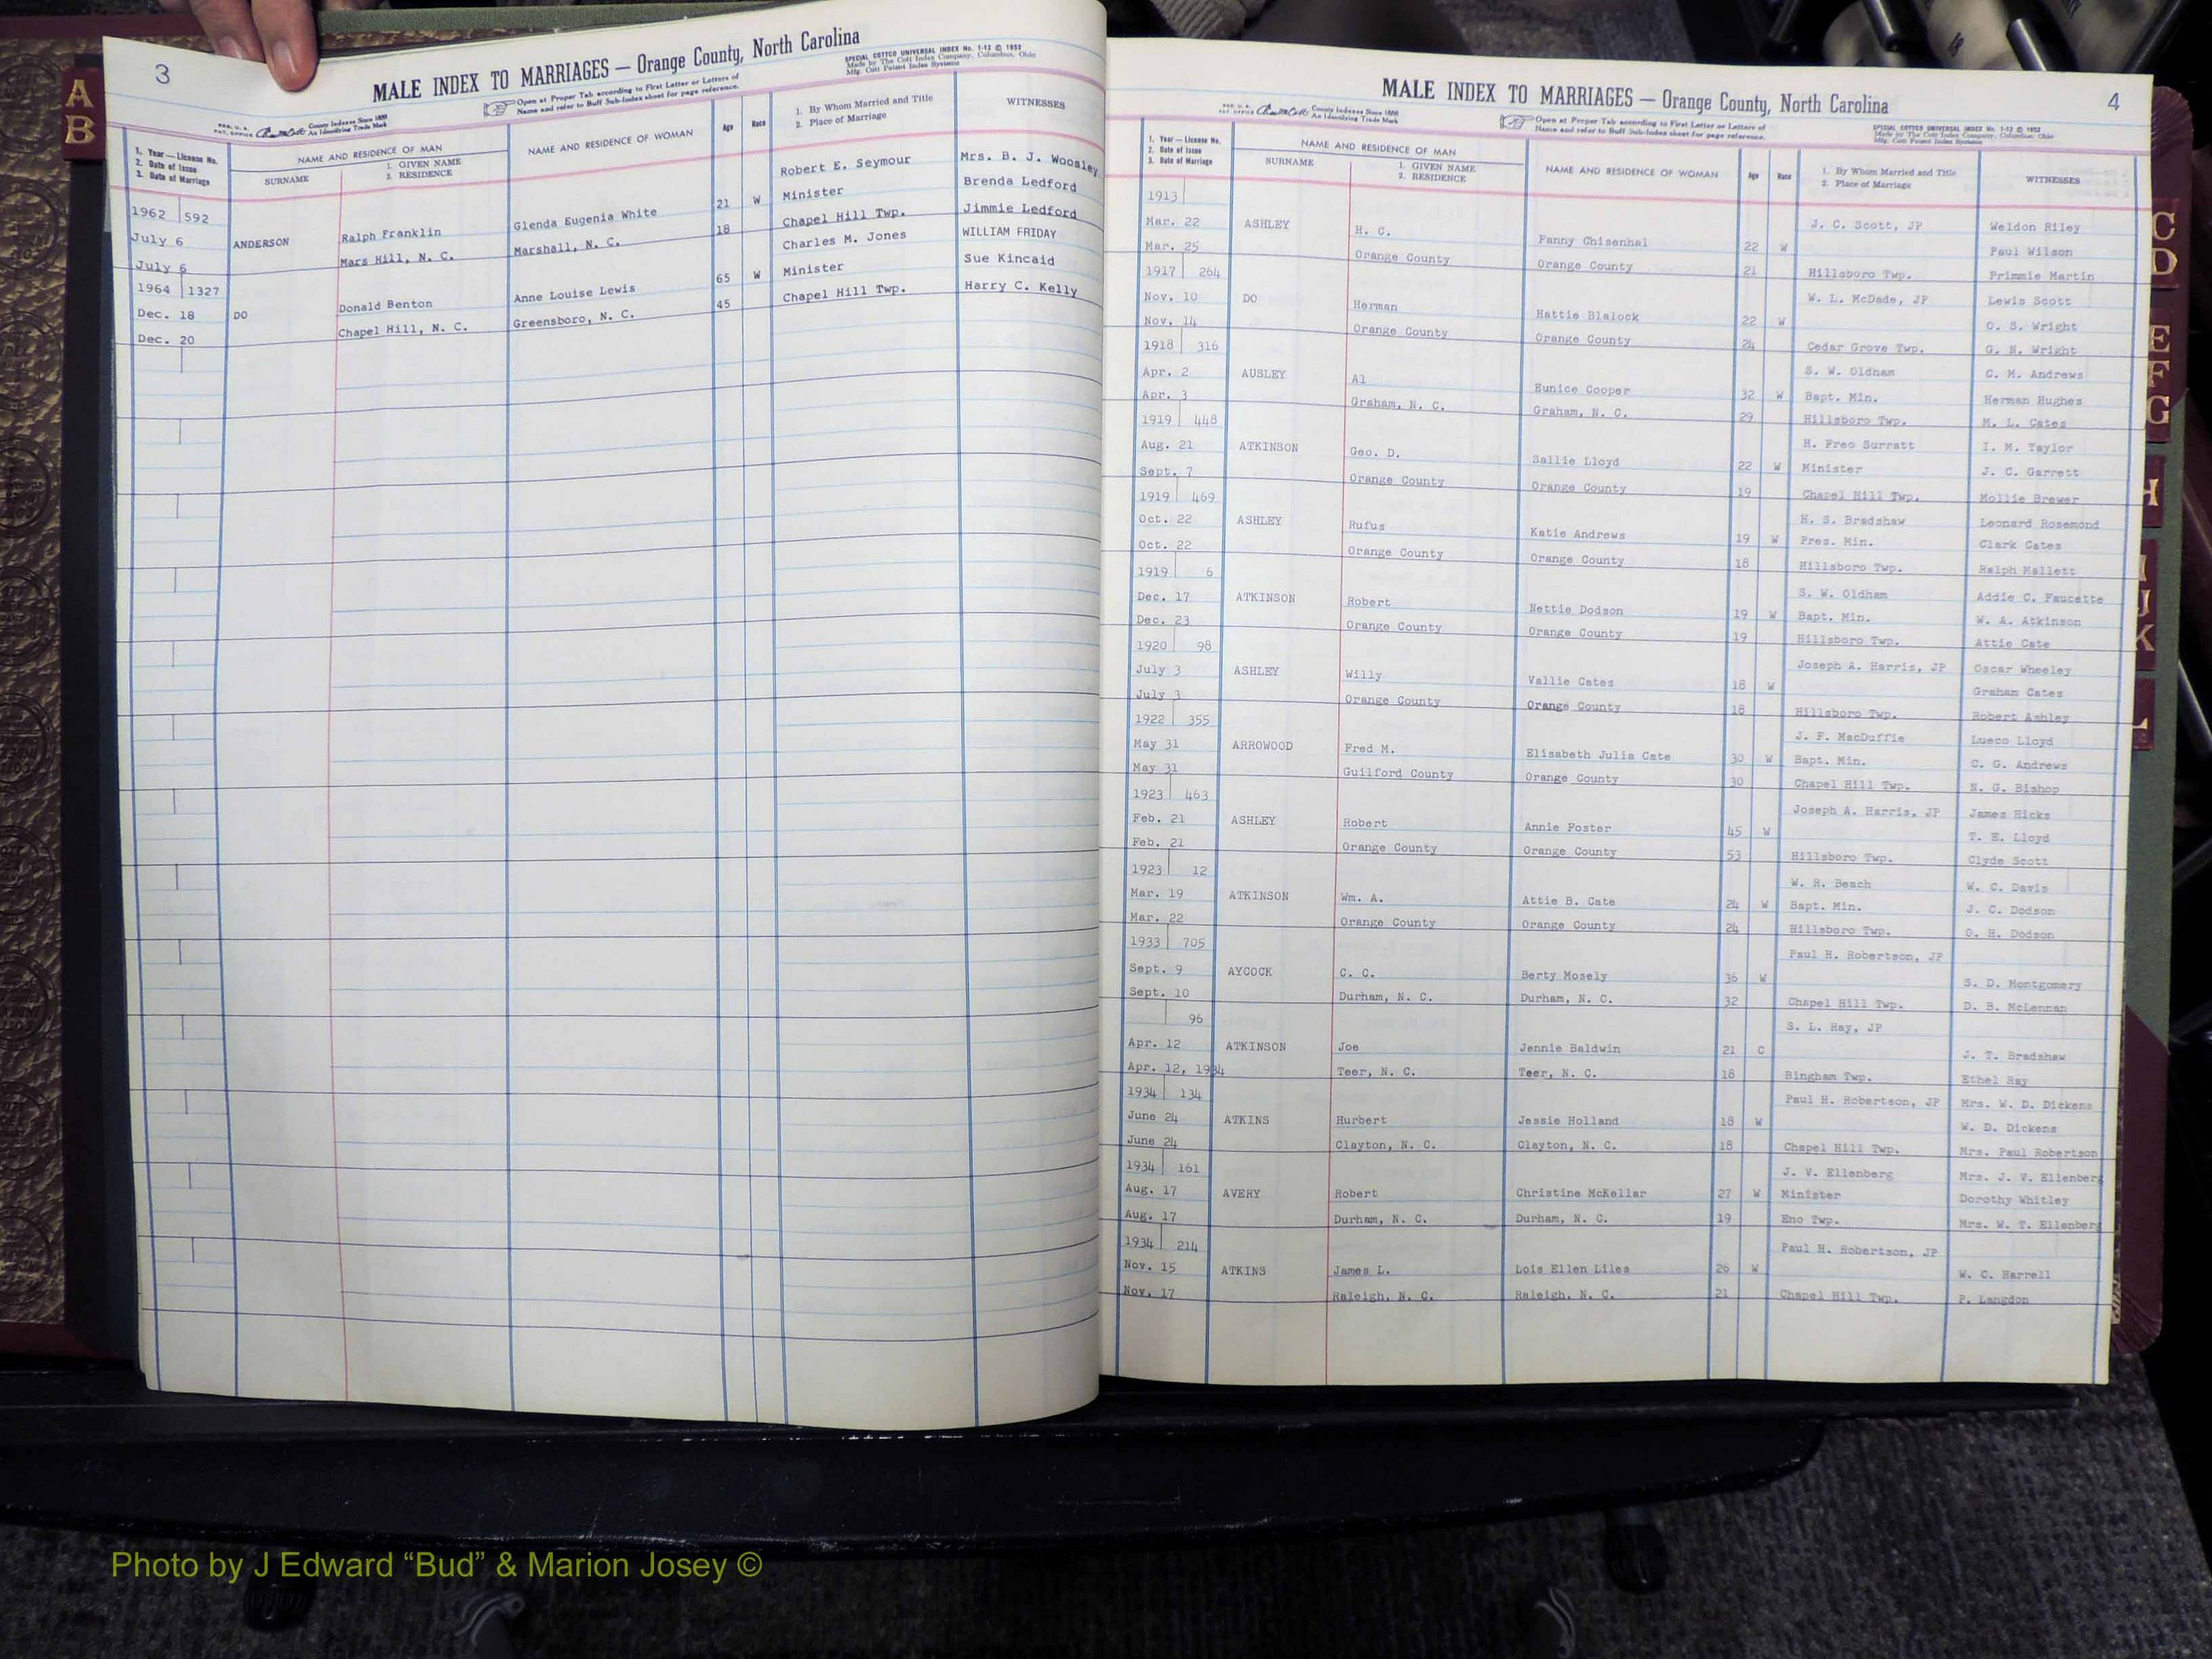 3
MALE INDEX TO MARRIAGES — Orange County, North Carolina
SPECIAL COTTCO UNIVERSAL INDEX No. 1-12 © 1952
Made by The Cott Index Company, Columbus, Ohio
Mfg. Cott Patent Index Systems
Open at Proper Tab according to First Letter or Letters of
Name and refer to Buff Sub-Index sheet for page reference.
REG. U. S. PAT. OFFICE County Indexes Since 1888 An Identifying Trade Mark
1. Year—License No. 2. Date of Issue 3. Date of Marriage
NAME AND RESIDENCE OF MAN
SURNAME 1. GIVEN NAME 2. RESIDENCE
NAME AND RESIDENCE OF WOMAN
Age Race
1. By Whom Married and Title 2. Place of Marriage
WITNESSES
1962 592 Robert E. Seymour Mrs. B. J. Woosley
July 6 ANDERSON Ralph Franklin Glenda Eugenia White 21 W Minister Brenda Ledford
July 6 Mars Hill, N. C. Marshall, N. C. 18 Chapel Hill Twp. Jimmie Ledford
1964 1327 Charles M. Jones WILLIAM FRIDAY
Dec. 18 DO Donald Benton Anne Louise Lewis 65 W Minister Sue Kincaid
Dec. 20 Chapel Hill, N. C. Greensboro, N. C. 45 Chapel Hill Twp. Harry C. Kelly
MALE INDEX TO MARRIAGES — Orange County, North Carolina
4
REG. U. S. PAT. OFFICE County Indexes Since 1888 An Identifying Trade Mark
Open at Proper Tab according to First Letter or Letters of
Name and refer to Buff Sub-Index sheet for page reference.
SPECIAL COTTCO UNIVERSAL INDEX No. 1-12 © 1952
Made by The Cott Index Company, Columbus, Ohio
Mfg. Cott Patent Index Systems
1. Year—License No. 2. Date of Issue 3. Date of Marriage
NAME AND RESIDENCE OF MAN
SURNAME 1. GIVEN NAME 2. RESIDENCE
NAME AND RESIDENCE OF WOMAN
Age Race
1. By Whom Married and Title 2. Place of Marriage
WITNESSES
1913 J. C. Scott, JP Weldon Riley
Mar. 22 ASHLEY H. C. Fanny Chisenhal 22 W Paul Wilson
Mar. 25 Orange County Orange County 21 Hillsboro Twp. Primmie Martin
1917 264 W. L. McDade, JP Lewis Scott
Nov. 10 DO Herman Hattie Blalock 22 W O. S. Wright
Nov. 14 Orange County Orange County 24 Cedar Grove Twp. G. N. Wright
1918 316 S. W. Oldham C. M. Andrews
Apr. 2 AUSLEY Al Eunice Cooper 32 W Bapt. Min. Herman Hughes
Apr. 3 Graham, N. C. Graham, N. C. 29 Hillsboro Twp. M. L. Cates
1919 448 H. Freo Surratt I. M. Taylor
Aug. 21 ATKINSON Geo. D. Sallie Lloyd 22 W Minister J. C. Garrett
Sept. 7 Orange County Orange County 19 Chapel Hill Twp. Mollie Brewer
1919 469 H. S. Bradshaw Leonard Rosemond
Oct. 22 ASHLEY Rufus Katie Andrews 19 W Pres. Min. Clark Cates
Oct. 22 Orange County Orange County 18 Hillsboro Twp. Ralph Mallett
1919 6 S. W. Oldham Addie C. Faucette
Dec. 17 ATKINSON Robert Nettie Dodson 19 W Bapt. Min. W. A. Atkinson
Dec. 23 Orange County Orange County 19 Hillsboro Twp. Attie Cate
1920 98 Joseph A. Harris, JP Oscar Wheeley
July 3 ASHLEY Willy Vallie Cates 18 W Graham Cates
July 3 Orange County Orange County 18 Hillsboro Twp. Robert Ashley
1922 355 J. F. MacDuffie Lueco Lloyd
May 31 ARROWOOD Fred M. Elisabeth Julia Cate 30 W Bapt. Min. C. G. Andrews
May 31 Guilford County Orange County 30 Chapel Hill Twp. N. G. Bishop
1923 463 Joseph A. Harris, JP James Hicks
Feb. 21 ASHLEY Robert Annie Foster 45 W T. E. Lloyd
Feb. 21 Orange County Orange County 53 Hillsboro Twp. Clyde Scott
1923 12 W. R. Beach W. C. Davis
Mar. 19 ATKINSON Wm. A. Attie B. Cate 24 W Bapt. Min. J. C. Dodson
Mar. 22 Orange County Orange County 24 Hillsboro Twp. O. H. Dodson
1933 705 Paul H. Robertson, JP
Sept. 9 AYCOCK C. C. Berty Mosely 36 W S. D. Montgomery
Sept. 10 Durham, N. C. Durham, N. C. 32 Chapel Hill Twp. D. B. McLennan
96 S. L. Ray, JP
Apr. 12 ATKINSON Joe Jennie Baldwin 21 C J. T. Bradshaw
Apr. 12, 1934 Teer, N. C. Teer, N. C. 18 Bingham Twp. Ethel Ray
1934 134 Paul H. Robertson, JP Mrs. W. D. Dickens
June 24 ATKINS Hurbert Jessie Holland 18 W W. D. Dickens
June 24 Clayton, N. C. Clayton, N. C. 18 Chapel Hill Twp. Mrs. Paul Robertson
1934 161 J. V. Ellenberg Mrs. J. V. Ellenberg
Aug. 17 AVERY Robert Christine McKellar 27 W Minister Dorothy Whitley
Aug. 17 Durham, N. C. Durham, N. C. 19 Eno Twp. Mrs. W. T. Ellenberg
1934 214 Paul H. Robertson, JP
Nov. 15 ATKINS James L. Lois Ellen Liles 26 W W. C. Harrell
Nov. 17 Raleigh, N. C. Raleigh, N. C. 21 Chapel Hill Twp. P. Langdon
A
B
C
D
E
F
G
H
I
J
K
L
Photo by J Edward “Bud” & Marion Josey ©